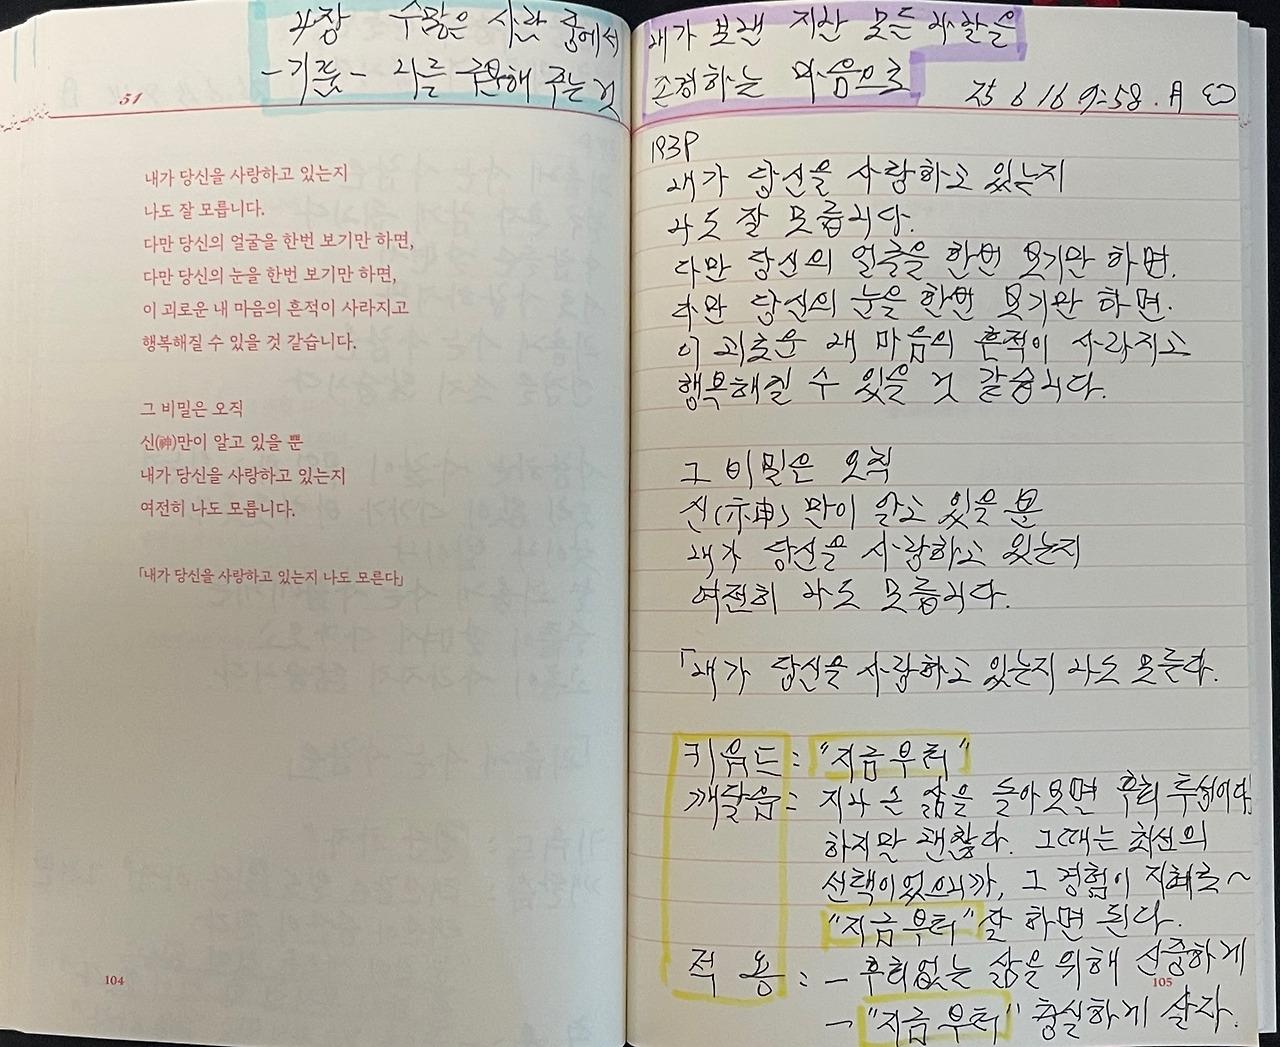 4장 수많은 사람 중에서
-기쁨- 나를 구분해 주는 것
51
내가 당신을 사랑하고 있는지
나도 잘 모릅니다.
다만 당신의 얼굴을 한번 보기만 하면,
다만 당신의 눈을 한번 보기만 하면,
이 괴로운 내 마음의 흔적이 사라지고
행복해질 수 있을 것 같습니다.
그 비밀은 오직
신(神)만이 알고 있을 뿐
내가 당신을 사랑하고 있는지
여전히 나도 모릅니다.
「내가 당신을 사랑하고 있는지 나도 모른다」
104
내가 보낸 지난 모든 나날을
존경하는 마음으로
25 6 16 9:58. 月
193P
내가 당신을 사랑하고 있는지
나도 잘 모릅니다.
다만 당신의 얼굴을 한번 보기만 하면.
다만 당신의 눈을 한번 보기만 하면.
이 괴로운 내 마음의 흔적이 사라지고
행복해질 수 있을 것 같습니다.
그 비밀은 오직
신(神)만이 알고 있을 뿐
내가 당신을 사랑하고 있는지
여전히 나도 모릅니다.
「내가 당신을 사랑하고 있는지 나도 모른다.
키워드: "지금부터"
깨달음: 지나온 삶을 돌아보면 후회 투성이다
하지만 괜찮다. 그때는 최선의
선택이었으니까, 그 경험이 지혜로~
"지금부터" 잘 하면 된다.
적용: - 후회없는 삶을 위해 신중하게
- "지금부터" 충실하게 살자.
105